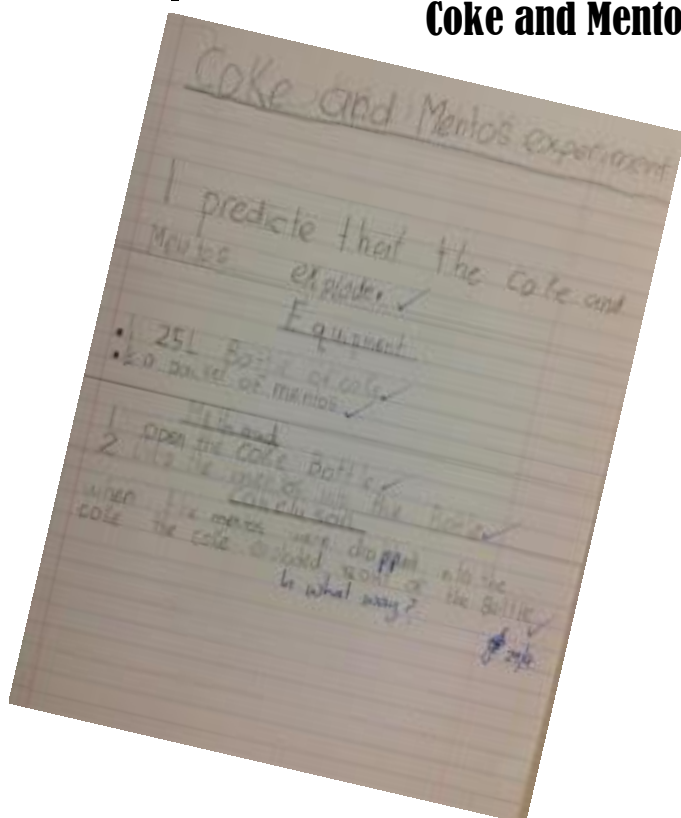 Coke and Mento
Coke and Mentos experiment
I predicte that the coke and
Mentos explode.
Equipment
• 1 25L Bottle of coke
• a packet of mentos
Method
1 open the coke Bottle
2 the into the Bottle
Conclusion
when the mentos were dropped into the
coke the coke exploded out of the Bottle
In what way?